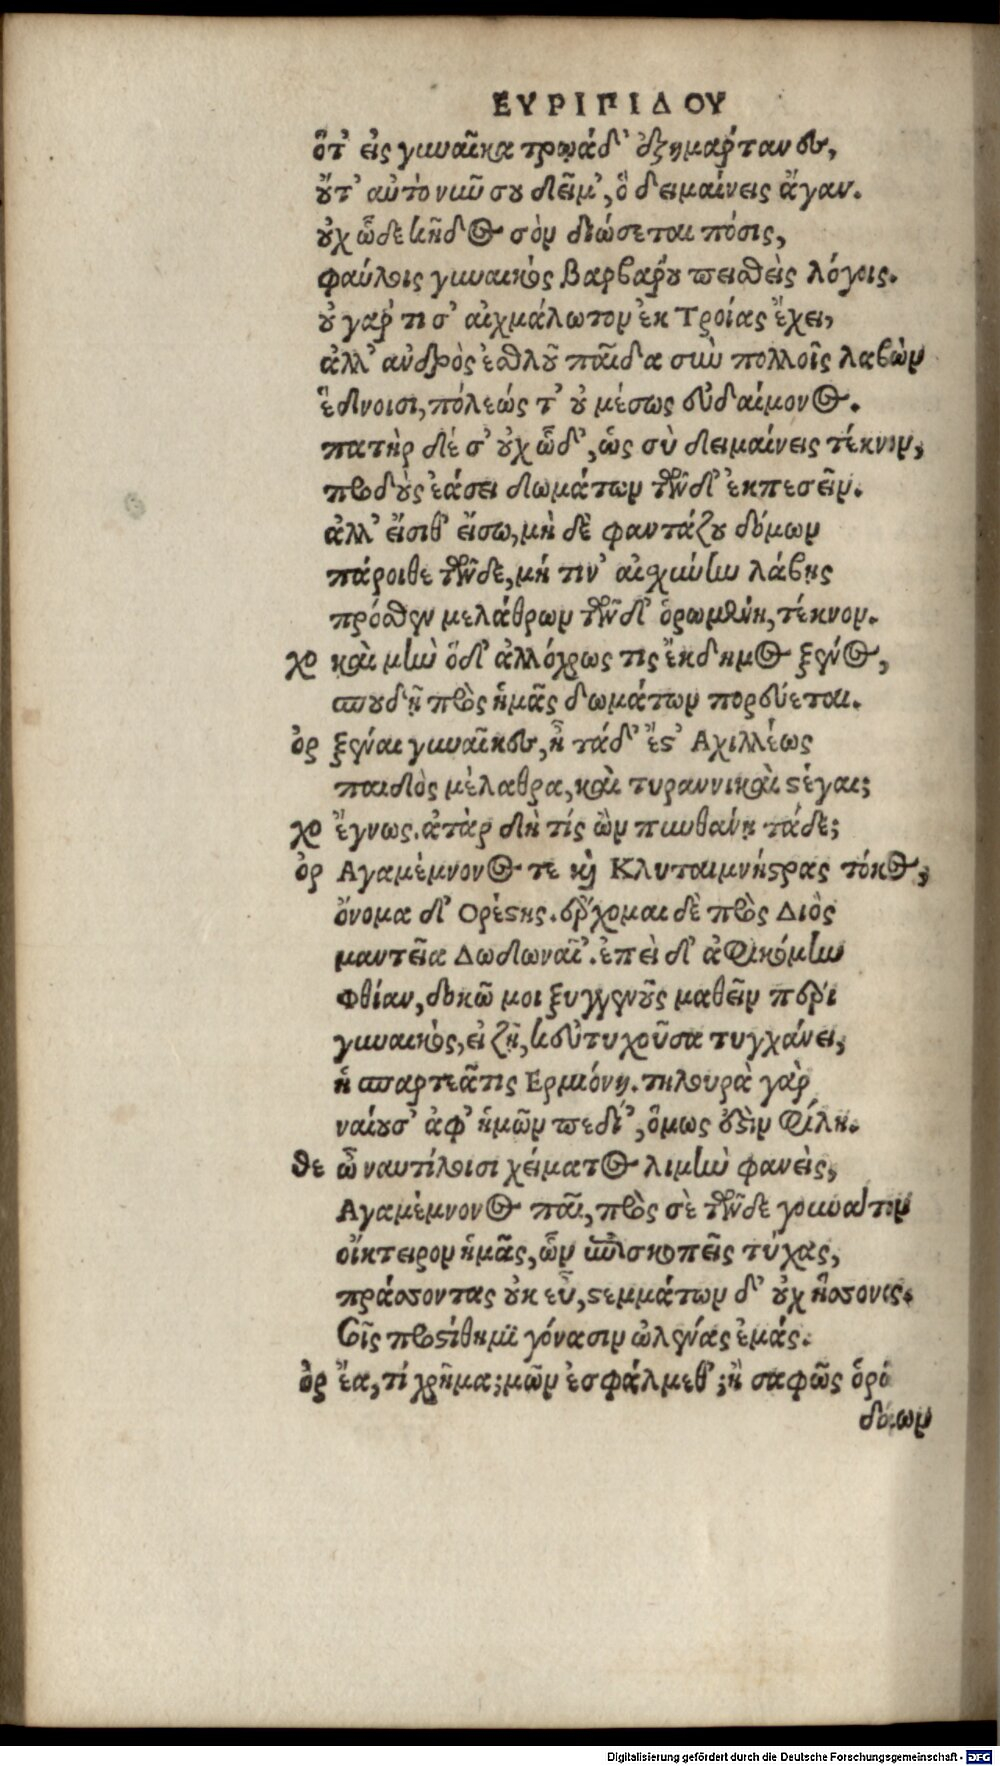 ΕΥΡΙΠΙΔΟΥ
ὅτ' εἰς γυναῖκα τρῳάδ' ἐξημάρτανεν,
οὔτ' αὐτὸ νῦν σοῦ δεῖμ', ὃ δειμαίνεις ἄγαν.
οὐχ ὧδε κῆδος σὸν διώσεται πόσις,
φαύλοις γυναικὸς βαρβάρου πεισθεὶς λόγοις.
οὐ γάρ τι σ' αἰχμάλωτον ἐκ Τροίας ἔχει,
ἀλλ' ἀνδρὸς ἐσθλοῦ παῖδα σὺν πολλοῖς λαβὼν
ἕδνοισι, πόλεώς τ' οὐ μέσως εὐδαίμονος.
πατὴρ δέ σ' οὐχ ὧδ', ὡς σὺ δειμαίνεις τέκνον,
προδοὺς ἐάσει δωμάτων τῶνδ' ἐκπεσεῖν.
ἀλλ' εἴσιθ' εἴσω, μὴ δὲ φαντάζου δόμων
πάροιθε τῶνδε, μή τιν' αἰσχύνην λάβῃς
πρόσθεν μελάθρων τῶνδ' ὁρωμένη, τέκνον.
χο καὶ μὴν ὅδ' ἀλλόχρως τις ἔκδημος ξένος,
σπουδῇ πρὸς ἡμᾶς δωμάτων πορεύεται.
ὀρ ξέναι γυναῖκες, ἦ τάδ' ἔστ' Αχιλλέως
παιδὸς μέλαθρα, καὶ τυραννικαὶ στέγαι;
χο ἔγνως. ἀτὰρ δὴ τίς ὢν πυνθάνῃ τάδε;
ὀρ Αγαμέμνονός τε καὶ Κλυταιμνήστρας τόκος,
ὄνομα δ' Ορέστης. ἔρχομαι δὲ πρὸς Διὸς
μαντεῖα Δωδωναῖ'. ἐπεὶ δ' ἀφικόμην
Φθίαν, δοκῶ μοι ξυγγενοῦς μαθεῖν περὶ
γυναικὸς, εἰ ζῇ, κ' εὐτυχοῦσα τυγχάνει,
ἡ σπαρτεᾶτις Ερμιόνη. τηλουρὰ γὰρ
ναίουσ' ἀφ' ἡμῶν πεδί', ὅμως ἐστὶν φίλη.
θε ὦ ναυτίλοισι χείματος λιμὴν φανεὶς,
Αγαμέμνονος παῖ, πρὸς σὲ τῶνδε γουνάτων
οἴκτειρον ἡμᾶς, ὧν ἐπισκοπεῖς τύχας,
πράσσοντας οὐκ εὖ, στεμμάτων δ' οὐχ ἥσσονας.
σοῖς προστίθημι γόνασιν ὠλένας ἐμάς.
ὀρ ἔα, τί χρῆμα; μῶν ἐσφάλμεθ'; ἢ σαφῶς ὁρῶ
δόμων
Digitalisierung gefördert durch die Deutsche Forschungsgemeinschaft - DFG